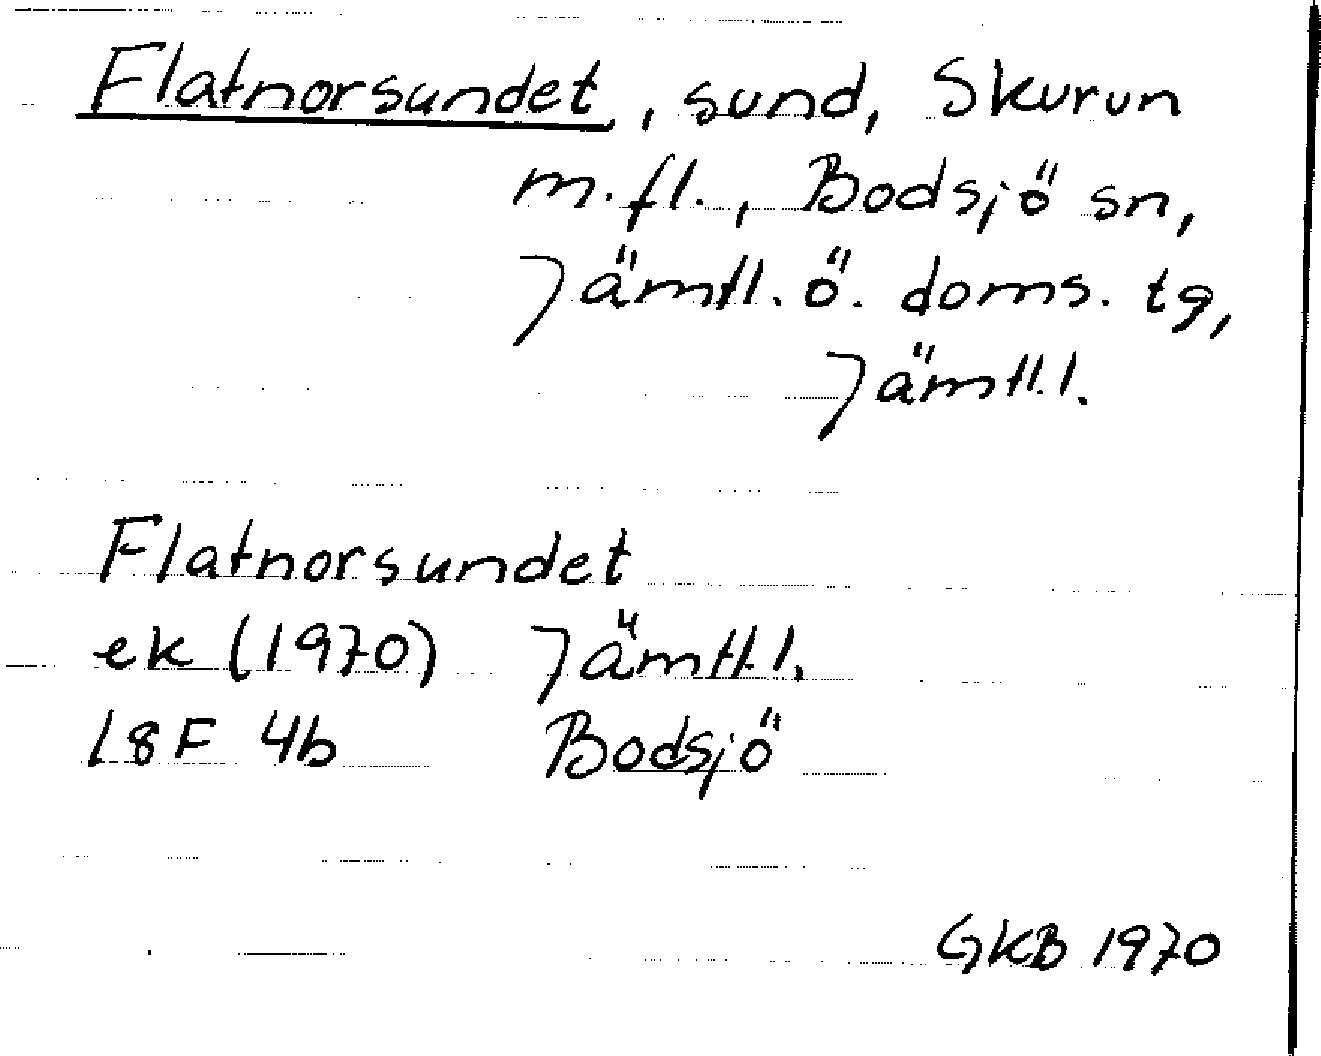 Flatnorsundet, sund, Skurun
m.fl., Bodsjö sn,
Jämtl. ö. doms. tg,
Jämtl.l.
Flatnorsundet
ek (1970) Jämtl.l.
18F 4b Bodsjö
GKB 1970